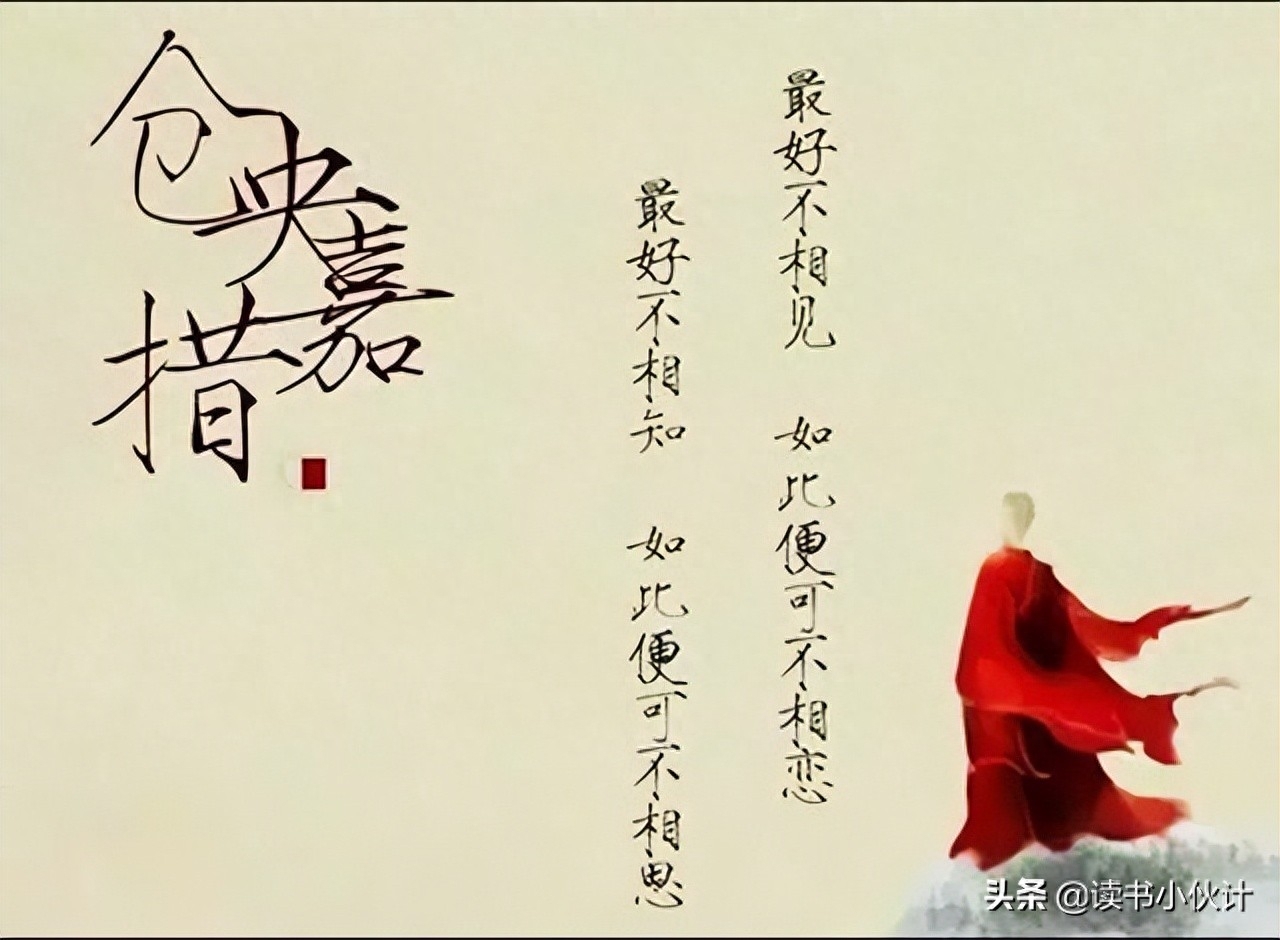 仓央嘉措
最好不相见 如此便可不相恋
最好不相知 如此便可不相思
头条 @读书小伙计